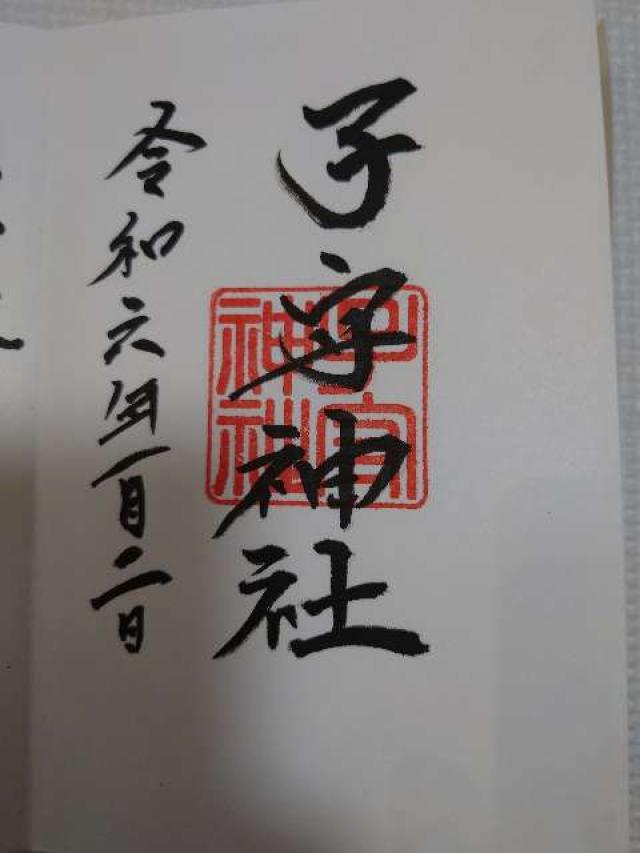 子守神社
令和六年一月二日